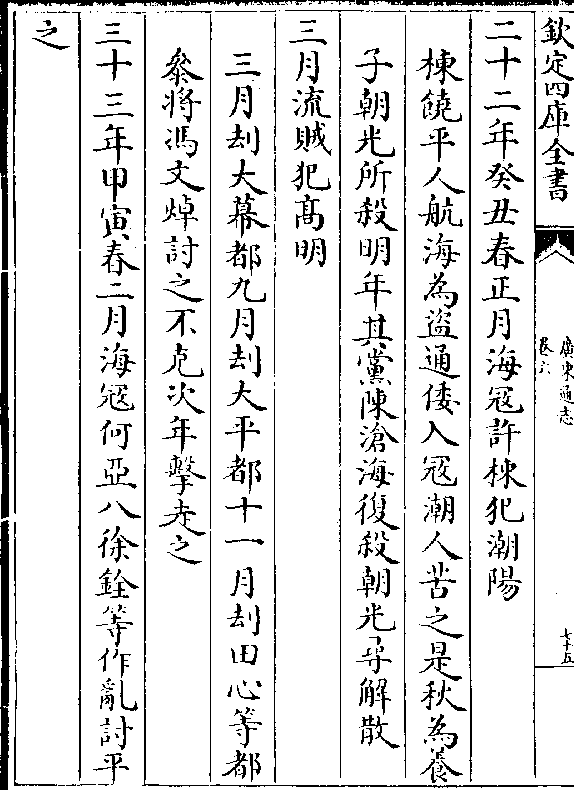 欽定四庫全書
廣東通志
卷六
七十五
二十二年癸丑春正月海寇許棟犯潮陽
棟饒平人航海為盜通倭入寇潮人苦之是秋為養
子朝光所殺明年其黨陳滄海復殺朝光尋解散
三月流賊犯高明
三月刼大幕都九月刼大平都十一月刼田心等都
叅將馮文焯討之不克次年擊走之
三十三年甲寅春二月海寇何亞八徐銓等作亂討平
之